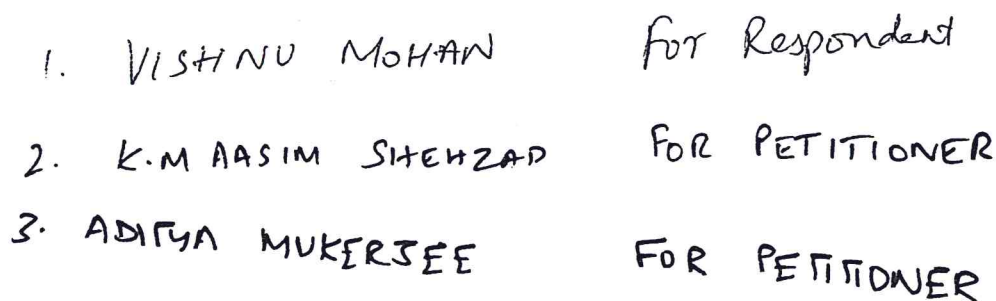 1. VISHNU MOHAN For Respondent
2. K.M AASIM SHEHZAD FOR PETITIONER
3. ADITYA MUKERJEE FOR PETITIONER